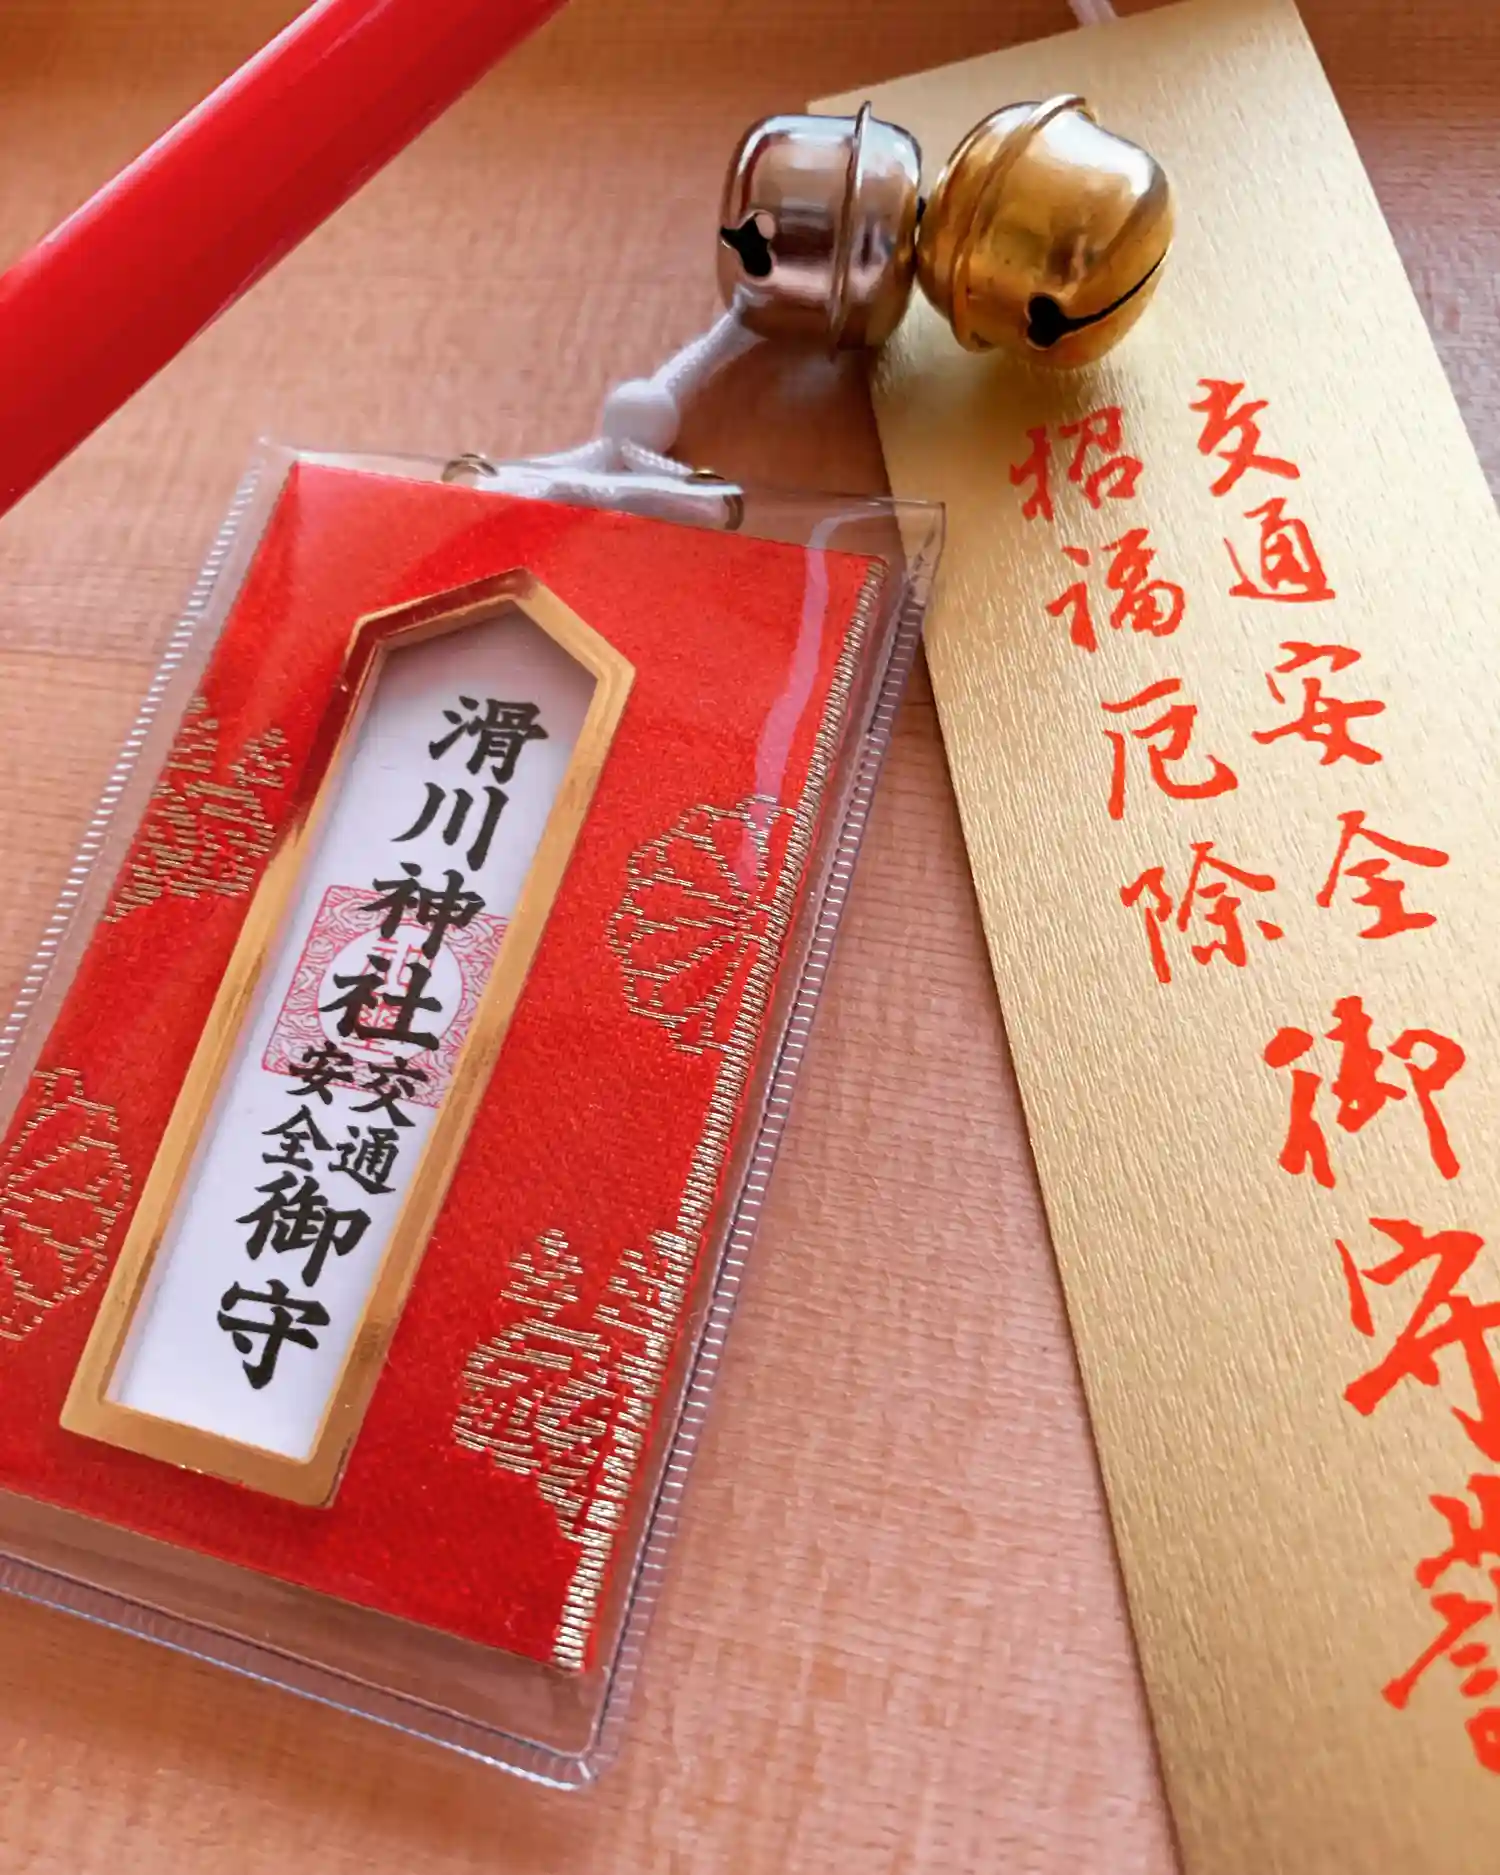 滑川神社
交通
安全
御守
交通安全
招福厄除
御守